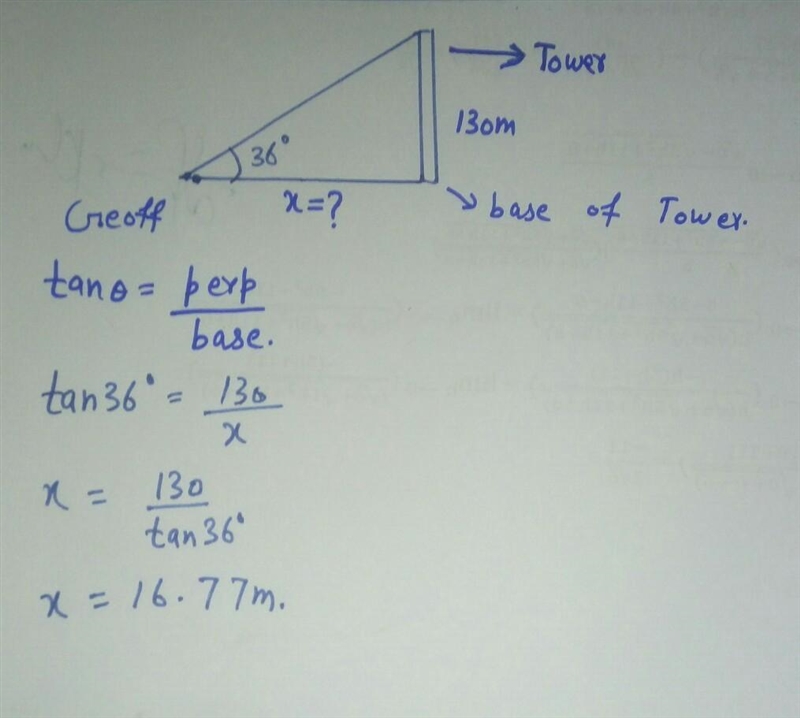 → Tower
36°
130m
Geoff
x=?
base of Tower.
tanθ = perp/base.
tan36° = 130/x
x = 130/tan36°
x = 16.77m.